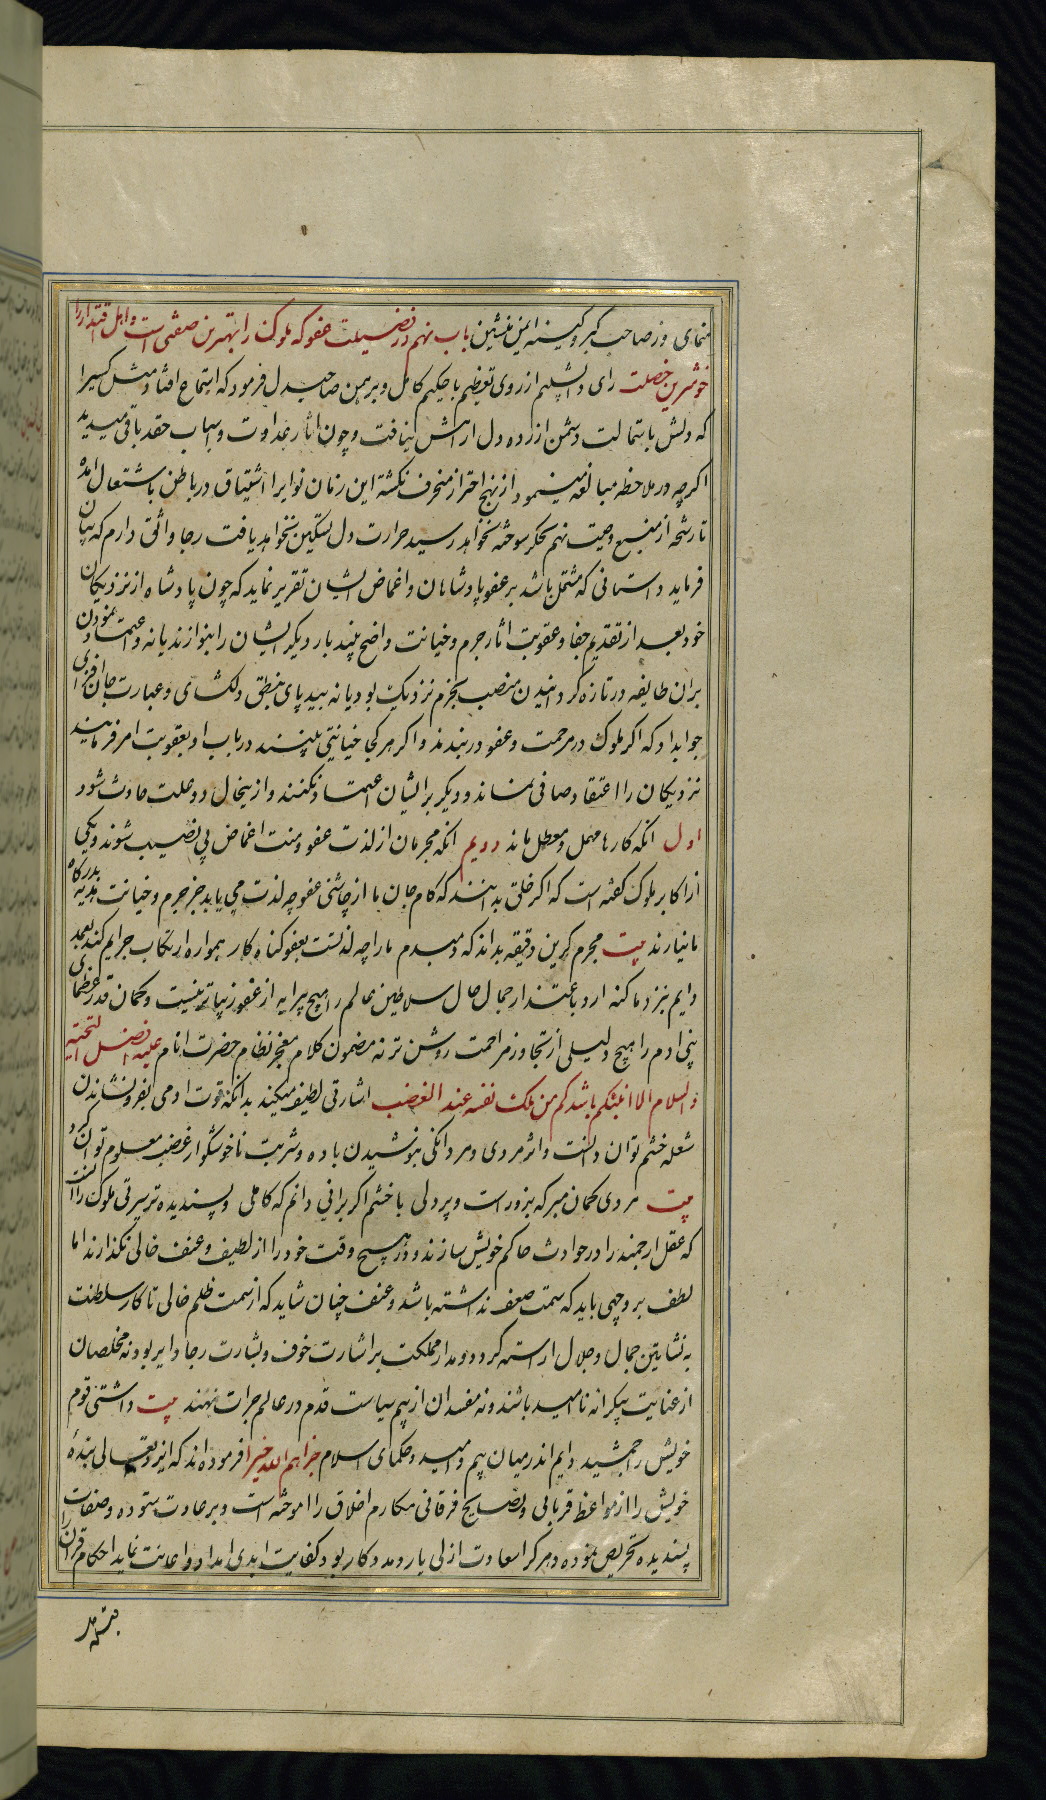 منمای وز صاحب کبر و کینه ایمن منشین باب نهم در فضیلت عفو که ملوک را بهترین صفتی است و اهل اقتدار را
خوشترین خصلت رای دابشلیم از روی تعظیم با حکیم کامل و برهمن صاحبدل فرمود که استماع افتاد مثل کسی را
که دلش باستمالت دشمن ازرده دل ارامش نیافت و چون اثار عداوت و اسباب حقد باقی میدید
اکرچه در ملاطفه مبالغه مینمود از نهج احتراز منحرف نکشت این زمان نوایرا اشتیاق در باطن باشتعال امده
تا رشحه از منبع وصیت نهم بجکر سوخته نخواهد رسید حرارت دل تسکین نخواهد یافت رجا واثق دارم که بیان
فرماید داستانی که مشتمل باشد بر عفو پادشاهان و اغماض ایشان تقریر نماید که چون پادشاه از نزدیکان
خود بعد از تقدیم جفا و عقوبت اثار جرم و خیانت واضح بیند بار دیکر ایشان را بنوازد یا نه و اعتماد نمودن
بران طایفه در تازه کردانیدن منصب بحزم نزدیک بود یا نه بیدپای بمنطق دلکشای و عبارت جان افزای
جواب داد که اکر ملوک در مرحمت و عفو دربندند و از هر کجا خیانتی بینند در باب او بعقوبت امر فرمایند
نزدیکان را اعتقاد صافی نماند و دیکر بر ایشان اعتماد نکنند و ازینحال دو علت حادث شود
اول انکه کارها مهمل و معطل ماند دویم انکه مجرمان از لذت عفو و منت اغماض بی نصیب شوند و یکی
از اکابر ملوک کفته است که اکر خلق بدانند که کام جان ما از چاشنی عفو چه لذت می یابد جز جرم و خیانت هدیه بدرکاه
ما نیارند بیت مجرم کر این دقیقه بداند که دمبدم ما را چه لذتست بعفو کناه کار همواره ارتکاب جرایم کند بعمد
دایم بنزد ما کنه ارد باعتذار جمال حال سلاطین عالم را هیچ پیرایه از عفو زیباتر نیست و کمان قدر عظمای
بنی ادم را هیچ دلیلی از تجاوز و مرحمت روشن تر نه مضمون کلام معجز نظام حضرت انام علیه افضل التحیه
و السلام الا انبئکم باشدکم من ملک نفسه عند الغضب اشارتی لطیف میکند بدانکه قوت ادمی بفرو نشاندن
شعله خشم توان دانست و اثر مردی و مردانکی بنوشیدن باده و شربت ناخوشکوار غضب معلوم توان کرد
بیت مردی کمان مبر که بزور است و پر دلی با خشم اکر برانی دانم که کاملی و پسندیده تر سیرتی ملوک را انست
که عقل ارجمند را در حوادث حاکم خویش سازند و در هیچ وقت خود را از لطف و عنف خالی نکذارند اما
لطف بر وجهی باید که سمت ضعف نداشته باشد و عنف چنان شاید که از سمت ظلم خالی تا کار سلطنت
به نشاتین جمال و جلال اراسته کردد و مدار مملکت بر اشارت خوف و بشارت رجا دایر بود نه مخلصان
از عنایت بیکرانه ناامید باشند و نه مفسدان از بیم سیاست قدم در عالم جرات نهند بیت داشتی قوم
خویش را جمشید دایم اندر میان بیم و امید و حکمای اسلام جزاهم الله خیرا فرموده اند که ایزد تعالی بنده
خویش را از مواعظ قرانی و نصایح فرقانی مکارم اخلاق را اموخته است و بر عادت ستوده و صفات
پسندیده تحریص نموده و هر کرا سعادت ازلی یار و مددکار بود کفایت ابدی امداد و اعانت نماید احکام قران را